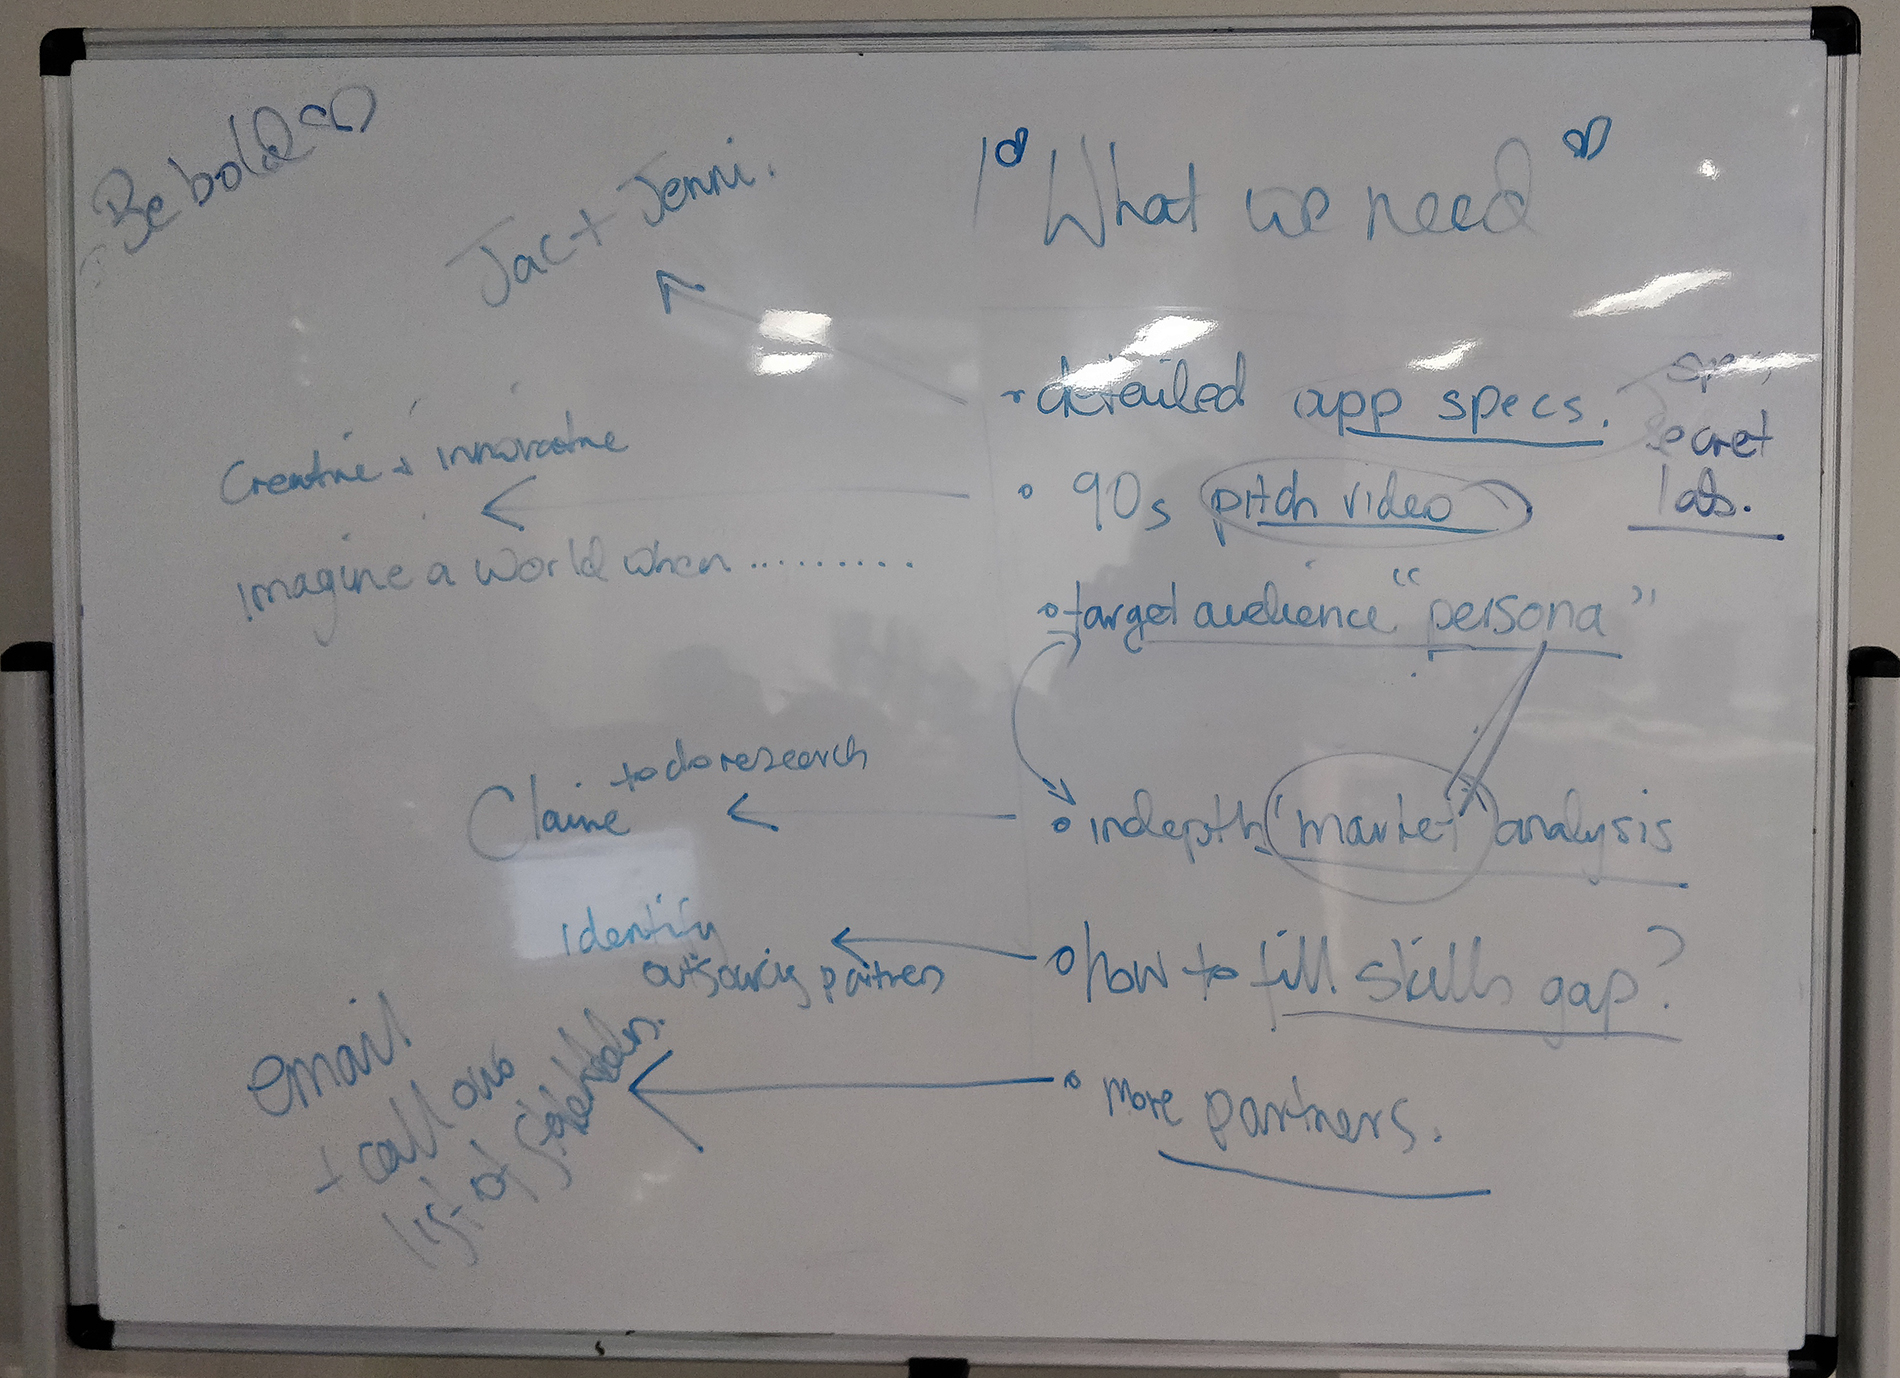 Be bold
Jac + Jenni.
"What we need"
detailed app specs.
secret
lab.
Creative + innovative
90s pitch video
Imagine a world when .........
target audience "persona"
Claire to do research
indepth "market" analysis
Identify
outsourcing partners
how to fill skills gap?
email
+ call our
list of stakeholders.
more partners.